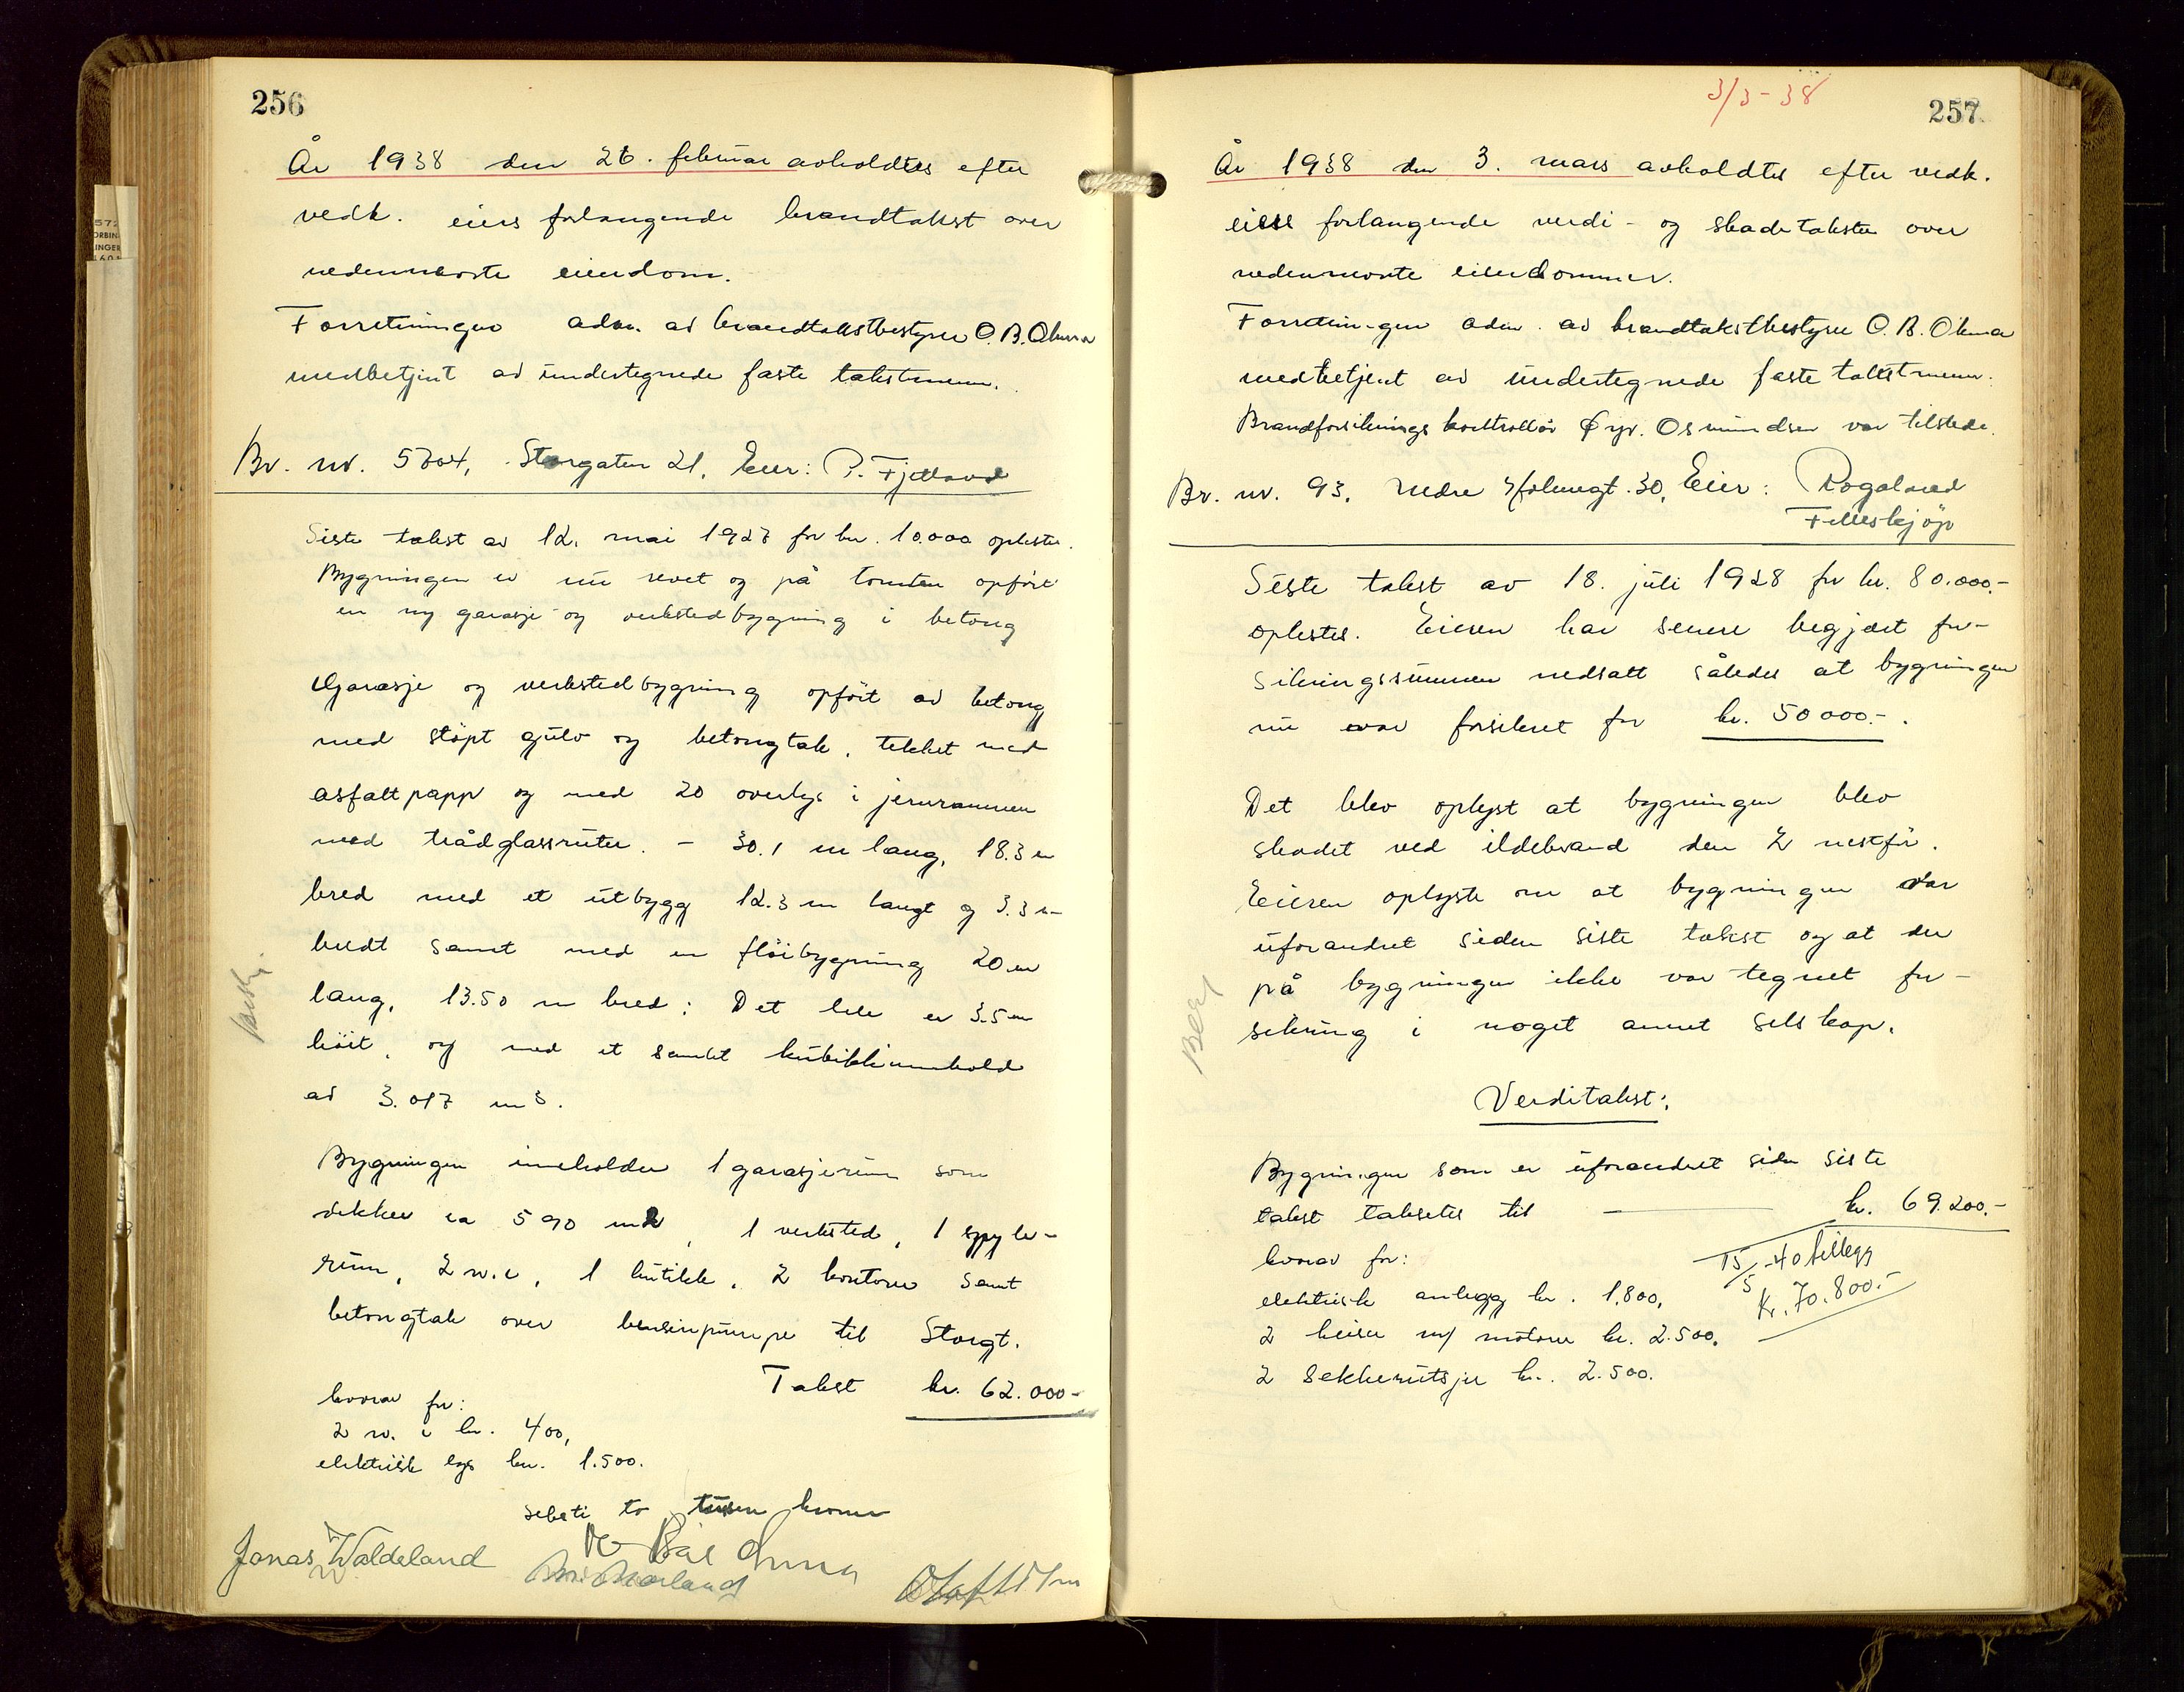 256
År 1938 den 26. februar avholdtes efter
vedk. eiers forlangende brandtakst over
nedennevnte eiendom.
Forretningen adm. av brandtakstbestyrer O.B.Obuna
medbetjent av undertegnede faste takstmenn.
Br. nr. 5704, Storgaten 21, Eier: P. Fjelland
Siste takst av 12. mai 1927 for kr. 10.000 oplestes.
Bygningen er nu revet og på tomten opført
en ny garasje og verkstedbygning i betong
Garasje og verkstedbygning opført av betong
med støpt gulv og betongtak, tekket med
asfaltpapp og med 20 overlys i jernrammer
med trådglassruter. - 30.1 m lang, 18.3 m
bred med et utbygg 12.3 m langt og 3.3 m
bredt samt med en fløibygning 20 m
lang, 13.50 m bred: Det hele er 3.5 m
høit, og med et samlet kubikkinnhold
av 3.017 m3.
Bygningen inneholder 1 garasjerum som
dekker ca 590 m2, 1 verksted, 1 spyle-
rum, 2 w.c, 1 butikk, 2 kontorer samt
betongtak over bensinpumpe til Storgt.
Takst kr. 62.000-
hvorav for:
2 w. c kr. 400,
elektrisk lys kr. 1.500.
seksti to tusen kroner
Jonas Waldeland
257
3/3-38
År 1938 den 3. mars avholdtes efter vedk.
eiers forlangende verdi- og skadetakster over
nedennevnte eiendommer.
Forretningen adm. av brandtakstbestyrer O.B.Obuna
medbetjent av undertegnede faste takstmenn.
Brandforsikringskontrollør Osmundsen var tilstede.
Br. nr. 93, Nedre Holmegt. 30, Eier: Rogaland
Felleskjøp
Siste takst av 18. juli 1928 for kr. 80.000.-
oplestes. Eieren har senere begjært for-
sikringssummen nedsatt således at bygningen
nu var forsikret for kr. 50000.-.
Det blev oplyst at bygningen blev
skadet ved ildebrand den 2 nestfør.
Eieren oplyste om at bygningen var
uforandret siden siste takst og at der
på bygningen ikke var tegnet for-
sikring i noget annet selskap.
Verditakst:
Bygningen som er uforandret siden siste
takst takseres til kr. 69.200.-
hvorav for:
15/5 -40 tillegg
kr. 70.800.-
elektrisk anlegg kr. 1.800,
2 heiser m/ motorer kr. 2.500,
2 sekkerutsjer kr. 2.500.